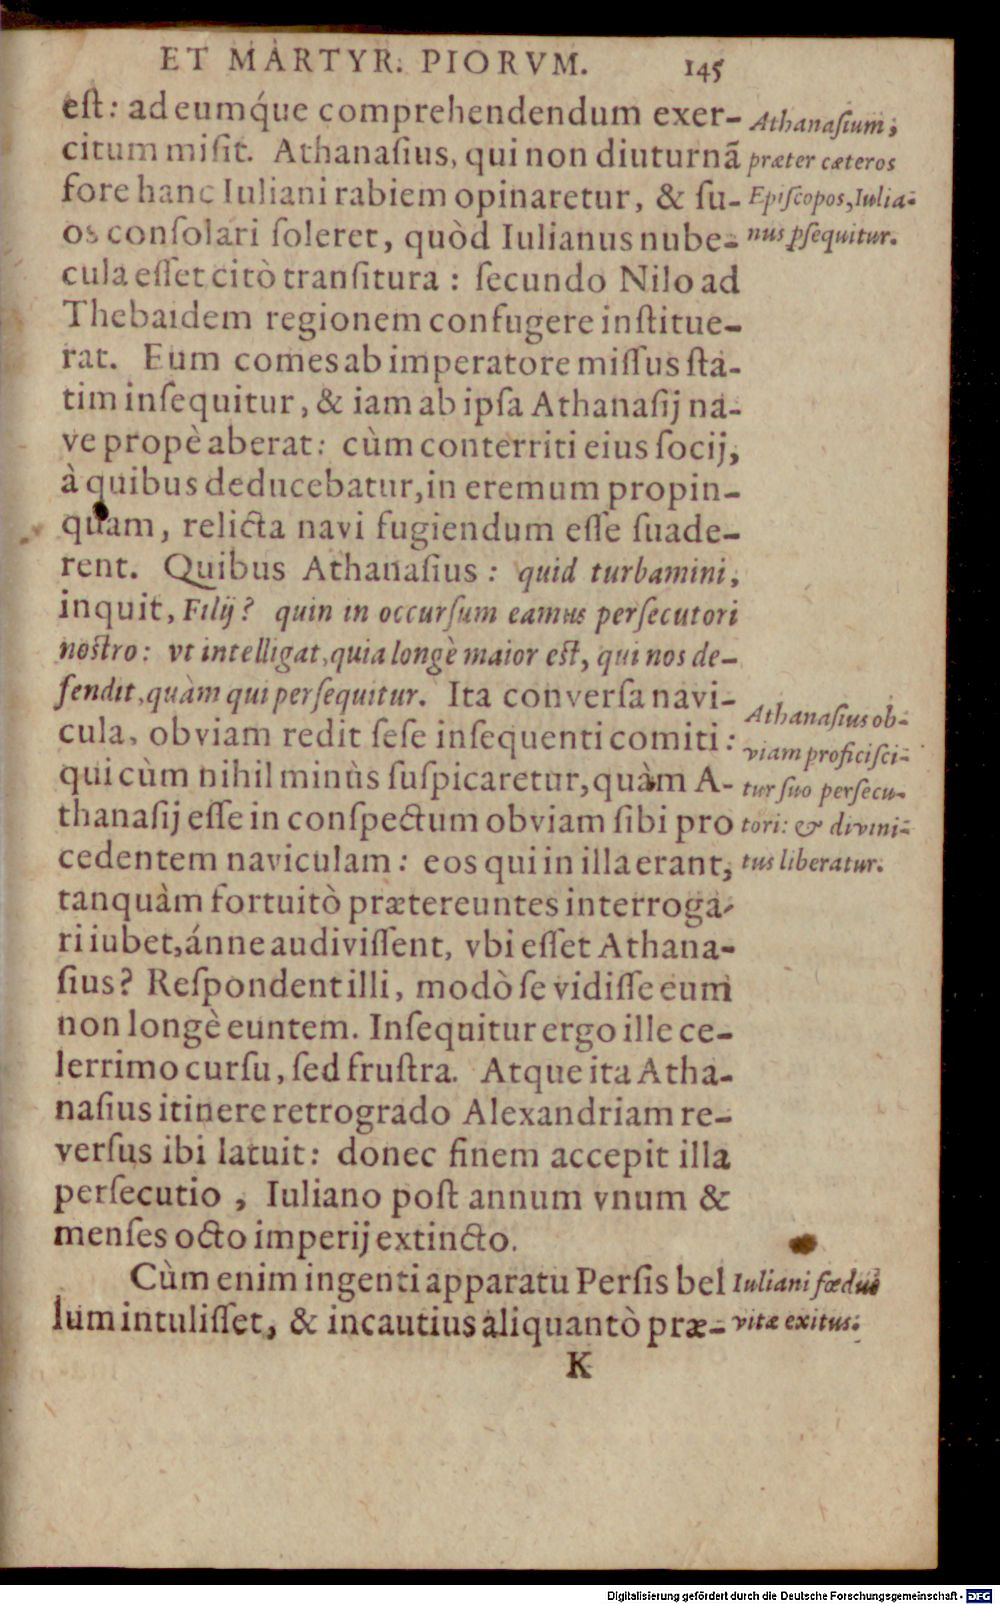 ET MARTYR. PIORVM. 145
est: ad eumq́ue comprehendendum exer-
citum misit. Athanasius, qui non diuturnā
fore hanc Iuliani rabiem opinaretur, & su-
os consolari soleret, quòd Iulianus nube-
cula esset citò transitura: secundo Nilo ad
Thebaidem regionem confugere institue-
rat. Eum comes ab imperatore missus sta-
tim insequitur, & iam ab ipsa Athanasij na-
ve propè aberat: cùm conterriti eius socij,
à quibus deducebatur, in eremum propin-
quam, relicta navi fugiendum esse suade-
rent. Quibus Athanasius: quid turbamini,
inquit, Filij? quin in occursum eamus persecutori
nostro: vt intelligat, quia longè maior est, qui nos de-
fendit, quàm qui persequitur. Ita conversa navi-
cula, obviam redit sese insequenti comiti:
qui cùm nihil minùs suspicaretur, quàm A-
thanasij esse in conspectum obviam sibi pro
cedentem naviculam: eos qui in illa erant,
tanquàm fortuitò prætereuntes interroga-
ri iubet, ánne audivissent, vbi esset Athana-
sius? Respondent illi, modò se vidisse eum
non longè euntem. Insequitur ergo ille ce-
lerrimo cursu, sed frustra. Atque ita Atha-
nasius itinere retrogrado Alexandriam re-
versus ibi latuit: donec finem accepit illa
persecutio, Iuliano post annum vnum &
menses octo imperij extincto.
Cùm enim ingenti apparatu Persis bel
lum intulisset, & incautius aliquantò præ-
K
Athanasium,
præter cæteros
Episcopos, Iulia-
nus ꝑsequitur.
Athanasius ob-
viam proficisci-
tur suo persecu-
tori: & divini-
tus liberatur.
Iuliani fœdus
vitæ exitus.
Digitalisierung gefördert durch die Deutsche Forschungsgemeinschaft - DFG